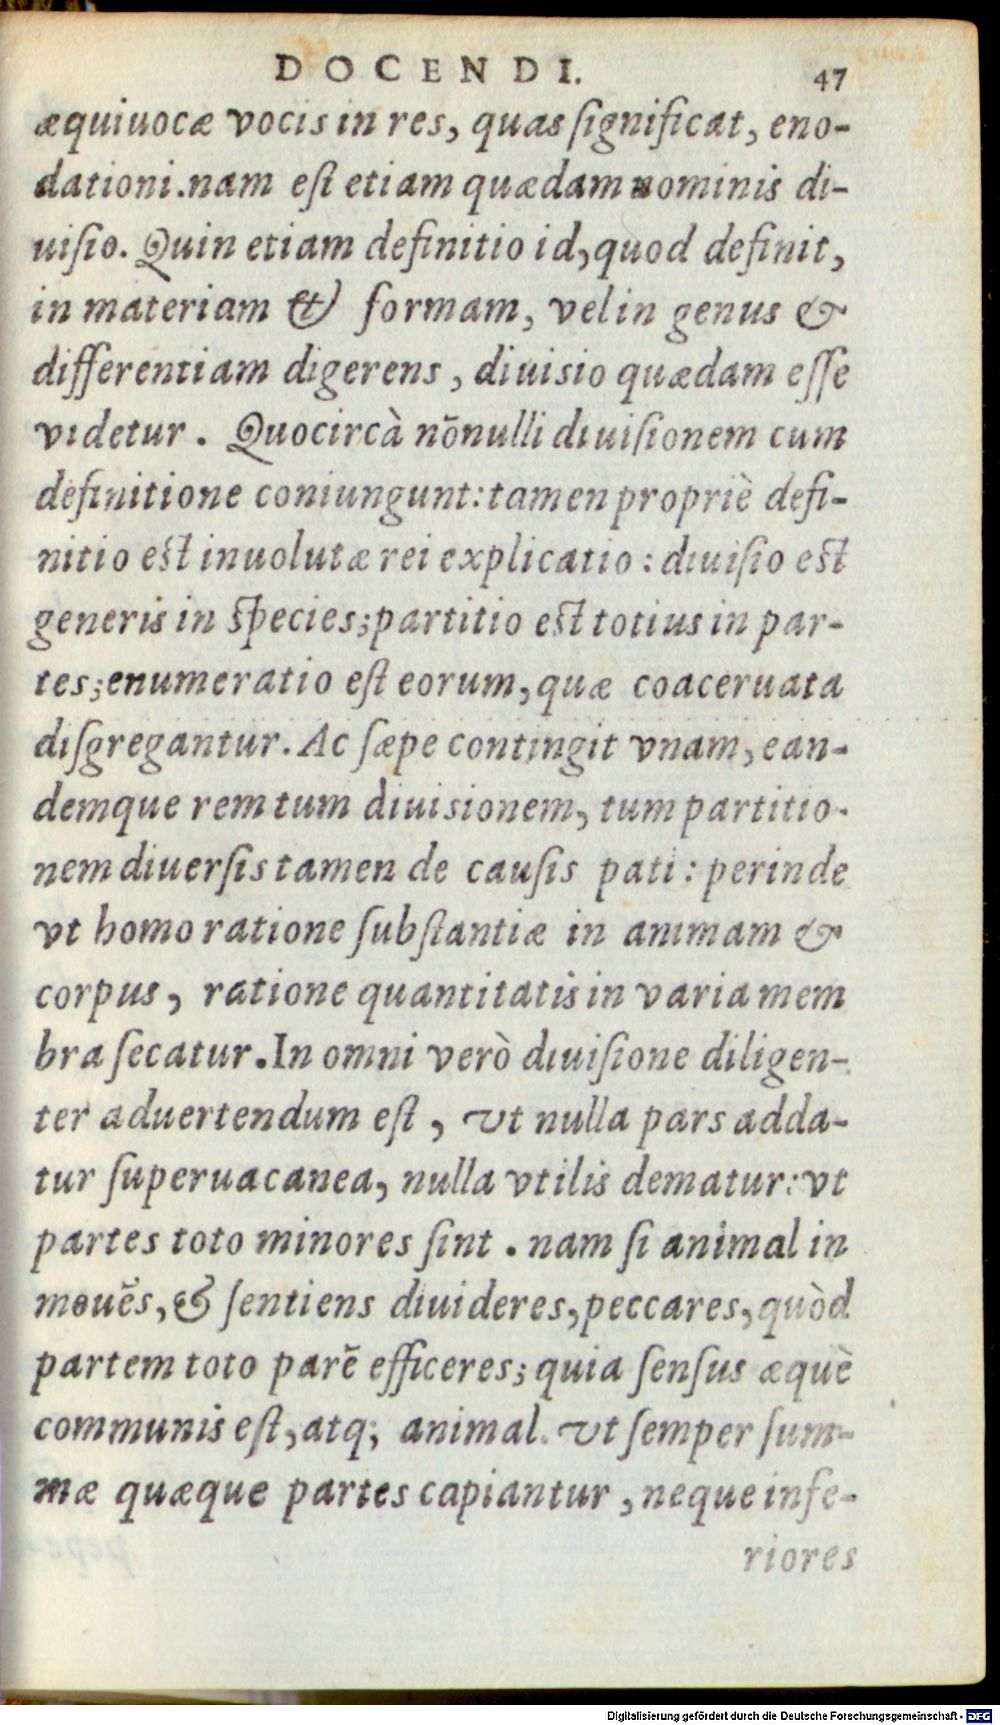 DOCENDI. 47
æquiuocæ vocis in res, quas ſignificat, eno-
dationi. nam eſt etiam quædam nominis di-
uiſio. Quin etiam definitio id, quod definit,
in materiam & formam, vel in genus &
differentiam digerens, diuisio quædam eſſe
videtur. Quocircà nōnulli diuiſionem cum
definitione coniungunt: tamen propriè defi-
nitio eſt inuolutæ rei explicatio: diuiſio eſt
generis in ſpecies; partitio eſt totius in par-
tes; enumeratio eſt eorum, quæ coaceruata
diſgregantur. Ac ſæpe contingit vnam, ean-
demque rem tum diuisionem, tum partitio-
nem diuerſis tamen de cauſis pati: perinde
vt homo ratione ſubſtantiæ in animam &
corpus, ratione quantitatis in varia mem
bra ſecatur. In omni verò diuiſione diligen-
ter aduertendum eſt, vt nulla pars adda-
tur ſuperuacanea, nulla vtilis dematur: vt
partes toto minores ſint. nam ſi animal in
mouēs, & ſentiens diuideres, peccares, quòd
partem toto parē efficeres; quia ſenſus æquè
communis eſt, atq; animal. vt ſemper ſum-
mæ quæque partes capiantur, neque infe-
riores
Digitalisierung gefördert durch die Deutsche Forschungsgemeinschaft - DFG